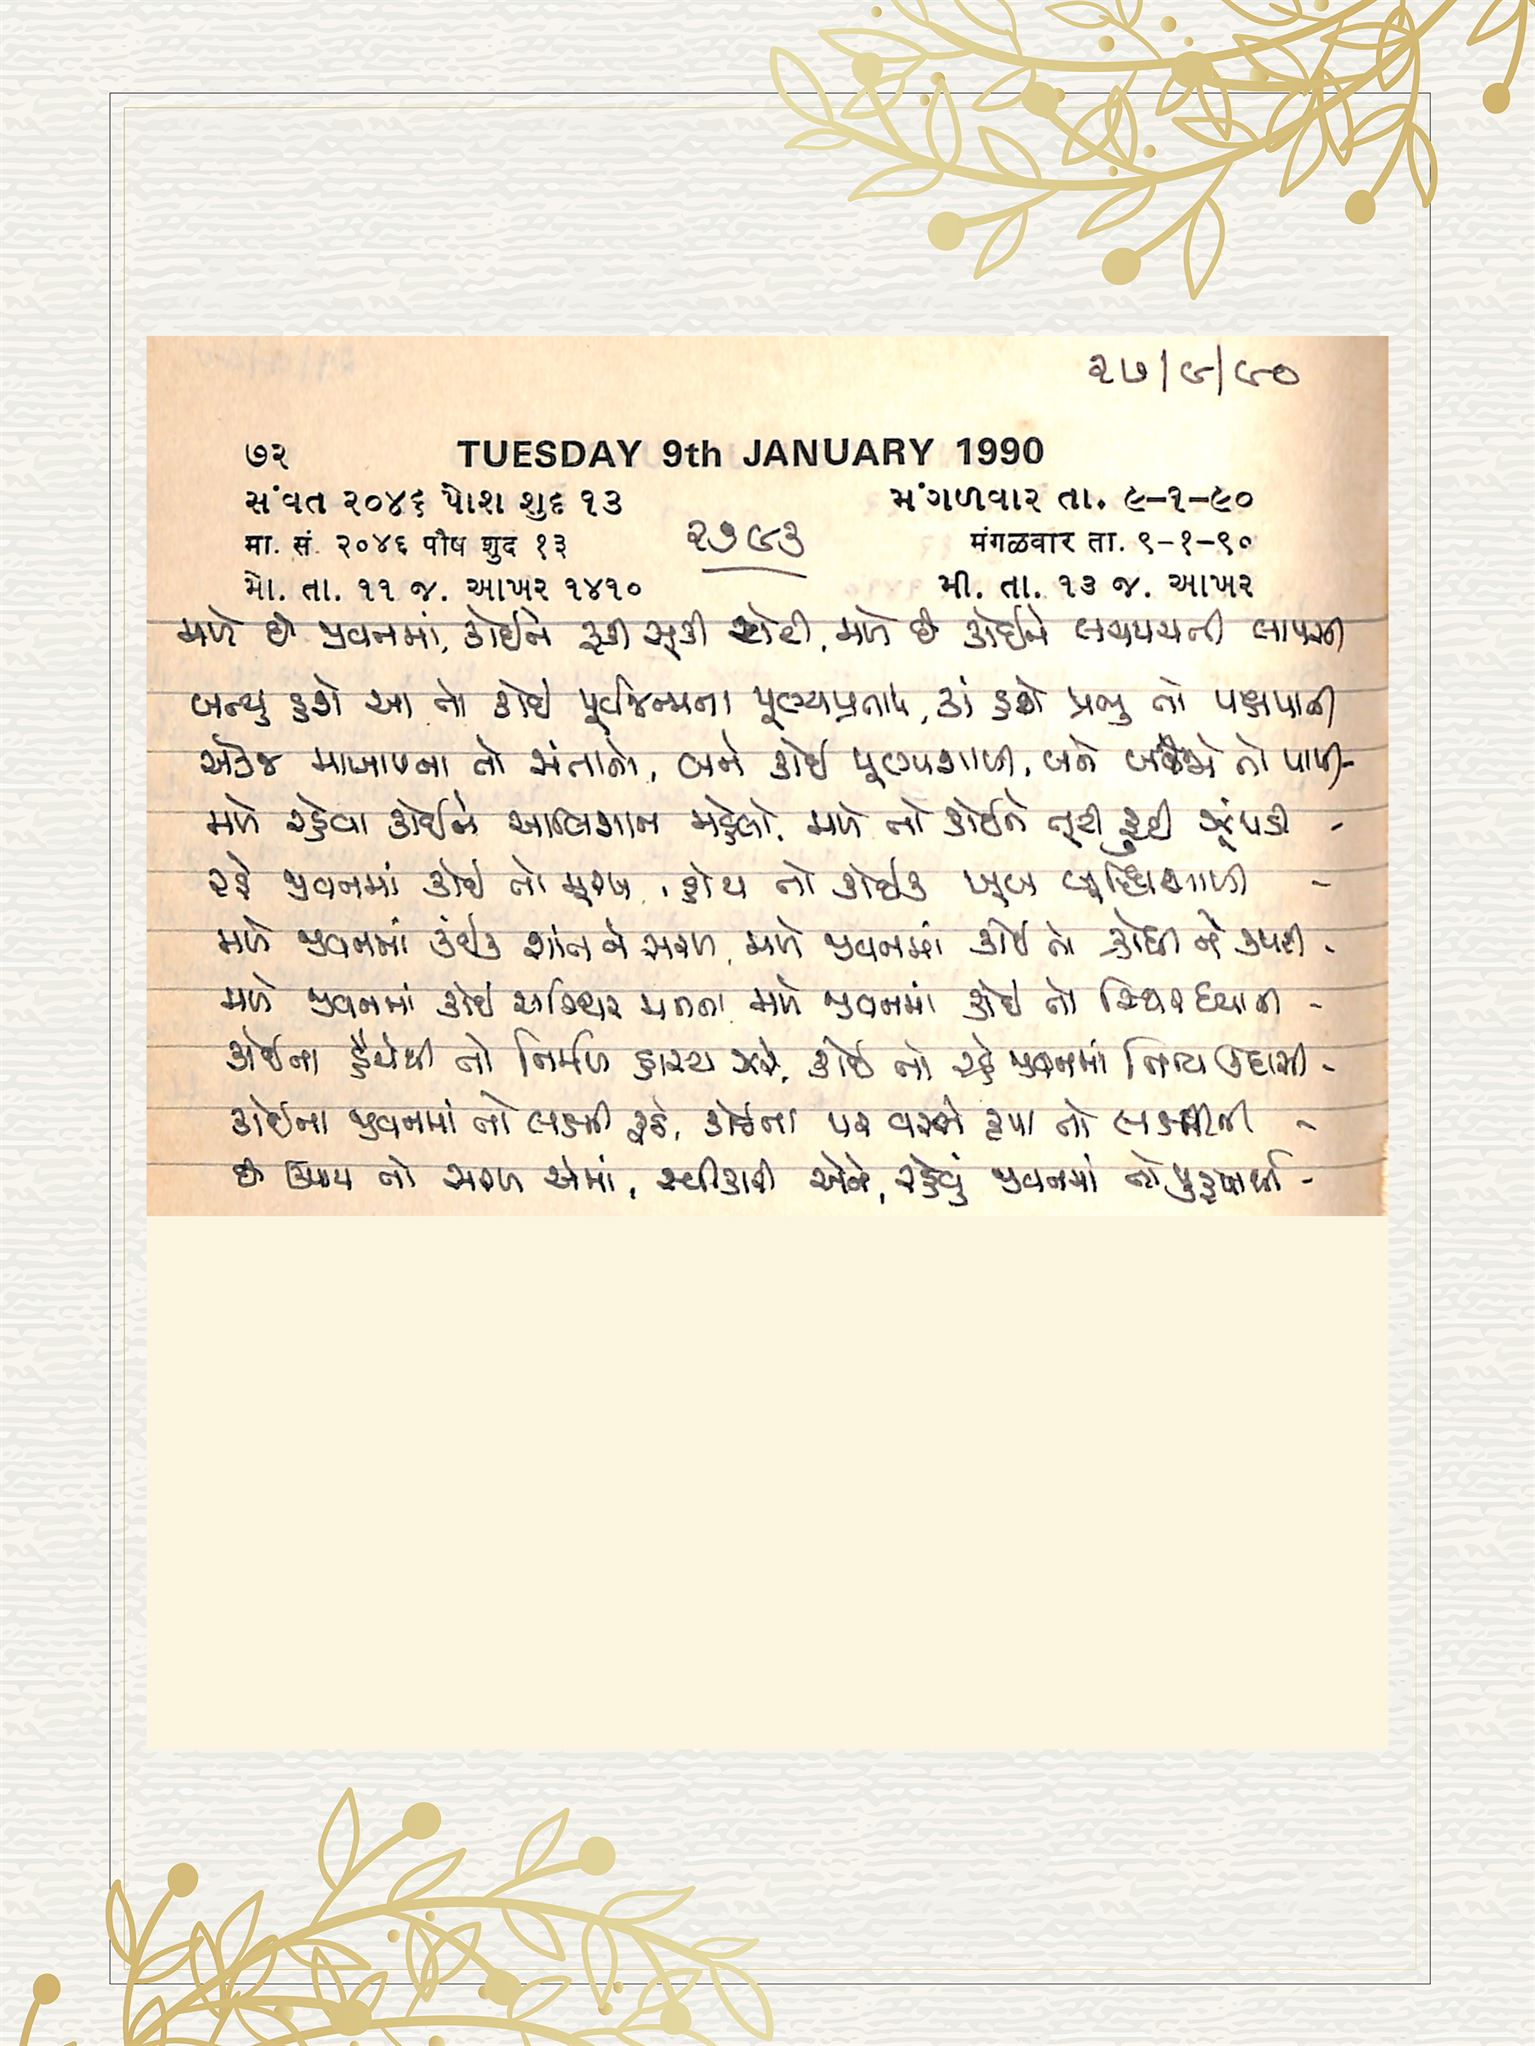 ૨૭/૯/૯૦
૭૨ TUESDAY 9th JANUARY 1990
સંવત ૨૦૪૬ પોશ શુદ ૧૩ મંગળવાર તા. ૯-૧-૯૦
मा. सं. २०४६ पौष शुद १३ मंगळवार ता. ९-१-९०
મો. તા. ૧૧ જ. આખર ૧૪૧૦ મી. તા. ૧૩ જ. આખર
૨૭૯૩
મળે છે જીવનમાં, કોઈને રૂકી સૂકી રોટી, મળે છે કોઈને લચપચતી લાપસી
બન્યુ હશે આ તો કોઈ પૂર્વજન્મના પૂણ્યપ્રતાપ, કાં હશે પ્રભુ તો પક્ષપાતી
એકજ માબાપના તો સંતાનો, બને કોઈ પૂણ્યશાળી, બને તો પાપી-
મળે રહેવા કોઈને આલિશાન મહેલો, મળે તો કોઈને તૂટી ફૂટી ઝૂંપડી -
રહે જીવનમાં કોઈ તો મૂરખ, હોય તો કોઈક ખૂબ બૂદ્ધિશાળી -
મળે જીવનમાં કંઈક શાંત ને સરળ, મળે જીવનમાં કોઈ તો ક્રોધી ને કપટી -
મળે જીવનમાં કોઈ અસ્થિર મનના મળે જીવનમાં કોઈ તો સ્થિર ધ્યાની -
કોઈના હૈયેથી તો નિર્મળ હાસ્ય ઝરે, કોઈ તો રહે જીવનમાં નિત્ય ઉદાસી -
કોઈના જીવનમાં તો લક્ષ્મી રૂઠે, કોઈના પર વરસે કૃપા તો લક્ષ્મીજી -
છે ઉપાય તો સરળ એમાં, સ્વીકારી એને, રહેવું જીવનમાં તો પુરૂષાર્થી -